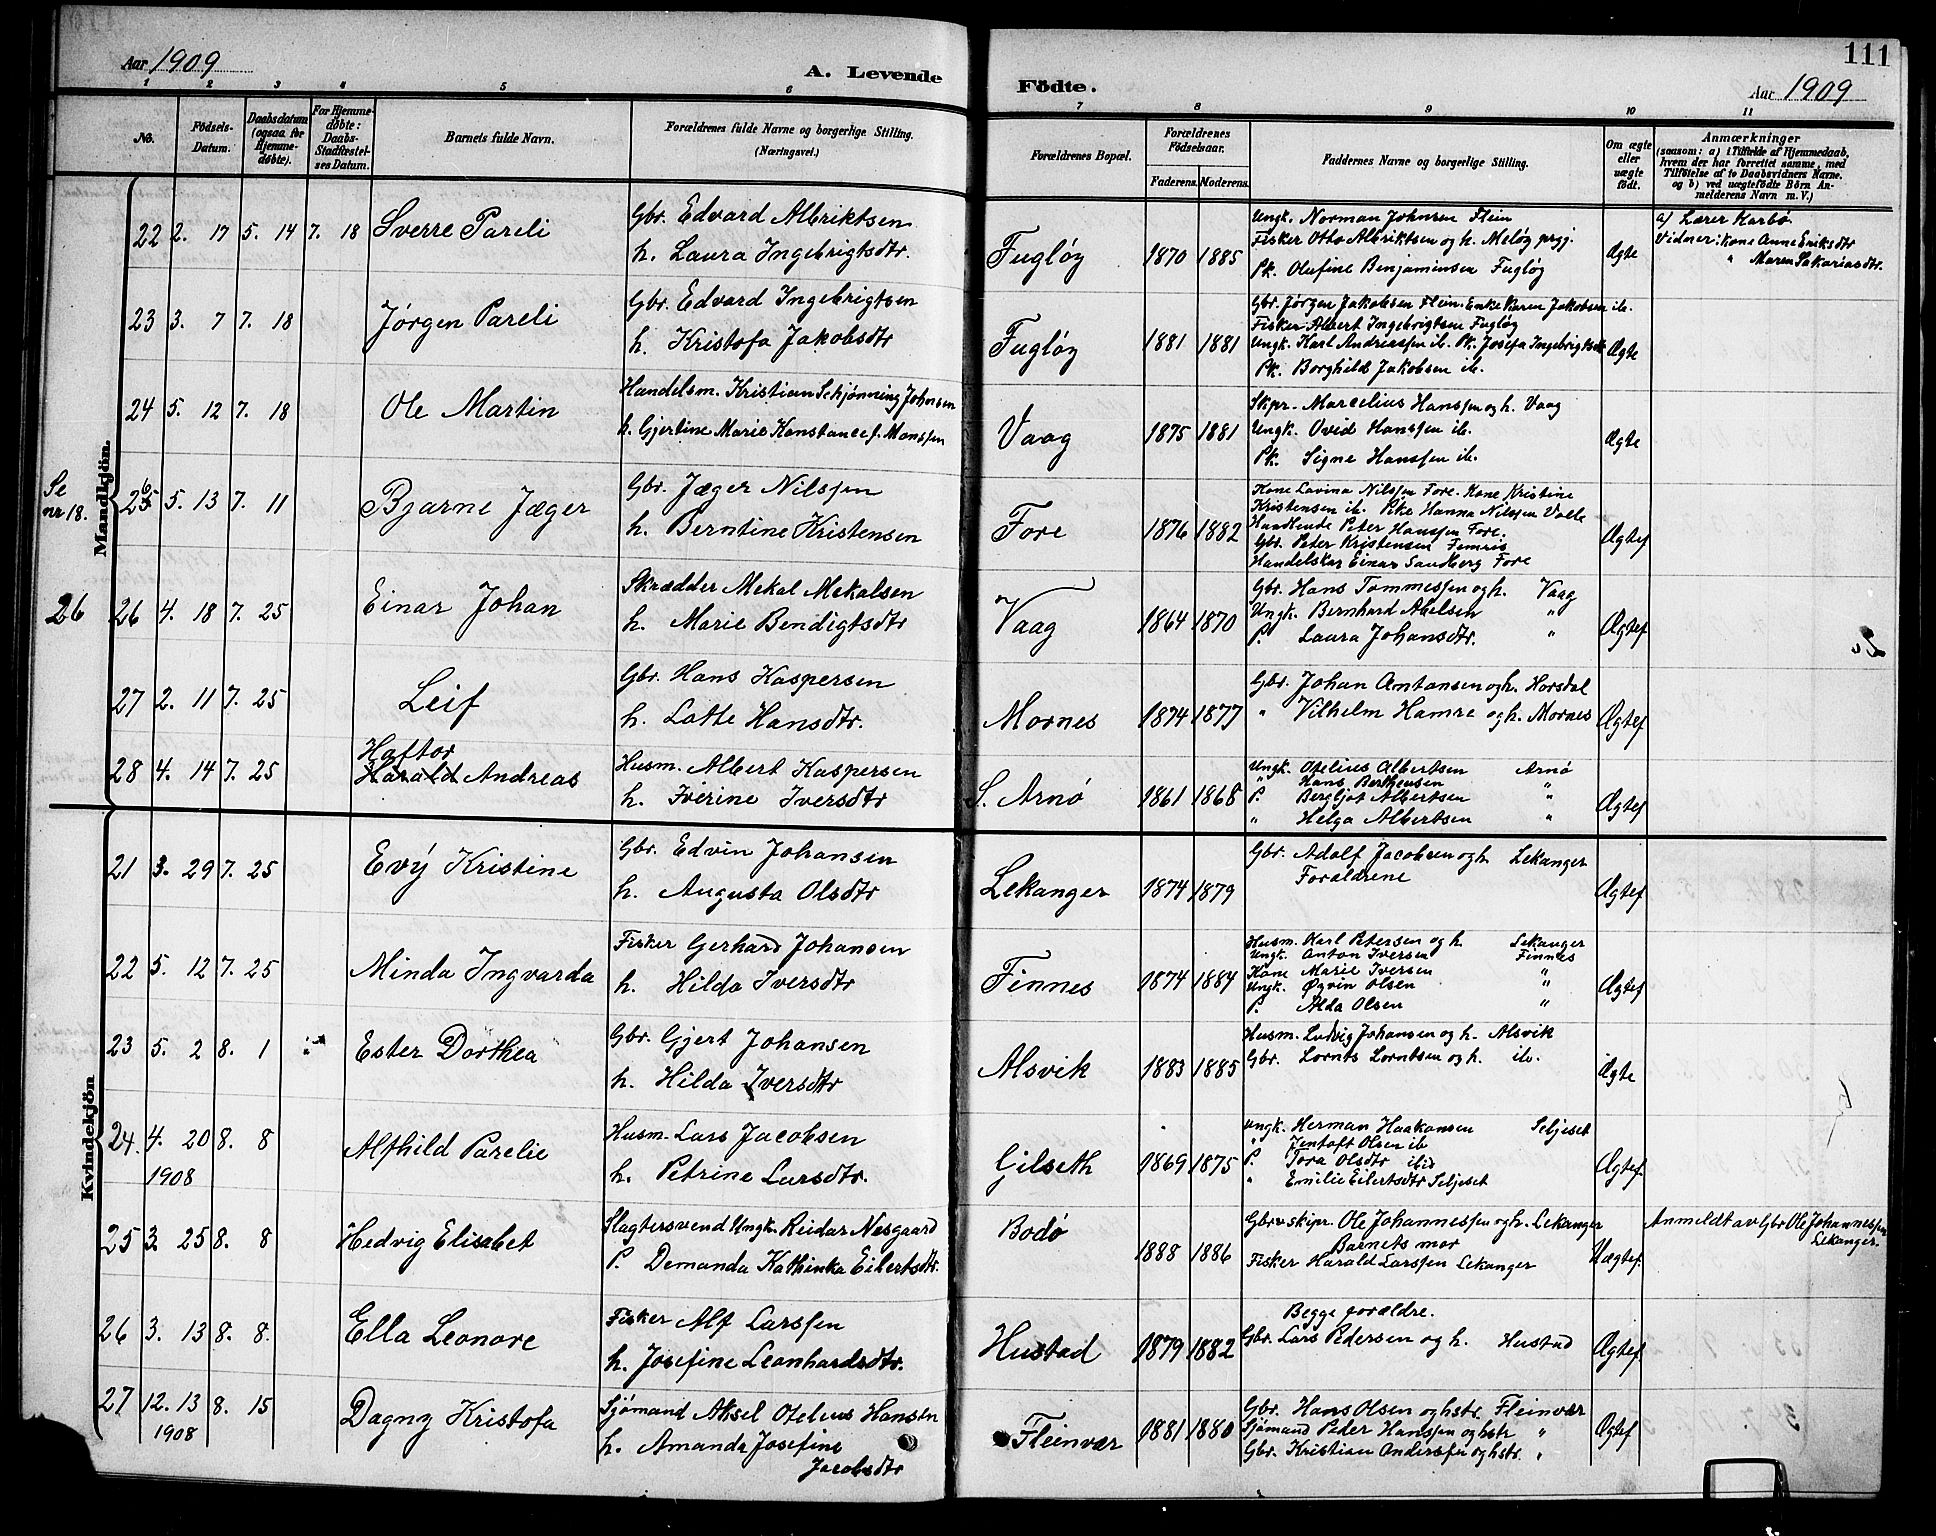 Aar 1909
A. Levende
Födte.
Aar 1909
111
1 2 3 4 5 6 7 8 9 10 11
No.
Födsels-Datum.
Daabsdatum (ogsaa for Hjemme-døbte).
For Hjemme-døbte: Daabs-Stadfæstel-ses Datum.
Barnets fulde Navn.
Forældrenes fulde Navne og borgerlige Stilling.
(Næringsvei.)
Forældrenes Bopæl.
Forældrenes Födselsaar.
Faderens. Moderens.
Faddernes Navne og borgerlige Stilling.
Om ægte eller uægte født.
Anmærkninger
(saasom: a) i Tilfælde af Hjemmedaab,
hvem der har forrettet samme, med
Tilføielse af to Daabsvidners Navne.
og b) ved uægtefødte Börn An-
melderens Navn m. V.)
Mandkjön.
22 2. 17 5. 14 7. 18 Sverre Pareli
Gbr. Edvard Albriktsen
h. Laura Ingebrigtsdtr.
Fugløy 1870 1885
Ungk. Norman Johnsen Flein
Fisker Otto Albriktsen og h. Meløy prgj.
Pk. Olufine Benjaminsen Fugløy
Ægte
a) Lærer Karbø.
Vidner: Kone Anne Eriksdtr
" Maren Sakariasdtr.
23 3. 7 7. 18 Jørgen Pareli
Gbr. Edvard Ingebrigtsen
h. Kristofa Jakobsdtr
Fugløy 1881 1881
Gbr. Jørgen Jakobsen Flein. Enke Karen Jakobsen ib.
Fisker Albert Ingebrigtsen Fugløy
Ungk. Karl Andrerssen ib. Pk. Josefa Ingebrigtsen
Pk. Borghild Jakobsen ib.
Ægte
24 5. 12 7. 18 Ole Martin
Handelsm. Kristian Schjønning Johnsen
h. Gjertine Marie Konstance f. Monssen
Vaag 1875 1881
Skpr. Marcelius Hanssen og h. Vaag
Ungk. Ovid Hanssen ib.
Pk. Signe Hanssen ib.
Ægte
Se nr 18.
25 6 5. 13 7. 11 Bjarne Jæger
Gbr. Jæger Nilssen
h. Berntine Kristensen
Fore 1876 1882
Kone Lavina Nilssen Fore. Kone Kristine
Kristensen ib. Pike Hanna Nilssen Valle
Handlende Peter Hanssen Fore.
Gbr. Peter Kristensen Femris
Handelskar Einar Sandberg Fore
Ægtef
26
26 4. 18 7. 25 Einar Johan
Skrædder Mekal Mekalsen
h. Marie Bendigtsdtr
Vaag 1864 1870
Gbr. Hans Tommessen og h. Vaag
Ungk. Bernhard Abelsen "
P. Laura Johansdtr. "
Ægtef
27 2. 11 7. 25 Leif
Gbr. Hans Kaspersen
h. Lotte Hansdtr.
Mornes 1874 1877
Gbr. Johan Antonsen og h. Horsdal
" Vilhelm Hamre og h. Mornes
Ægtef
28 4. 14 7. 25 Haftor
Harald Andreas
Husm. Albert Kaspersen
h. Iverine Iversdtr
S. Arnø 1861 1868
Ungk. Otelius Albertsen Arnø
" Hans Bertheusen "
P. Bergljot Albertsen "
" Helga Albertsen "
Ægtef
Kvindekjön
21 3. 29 7. 25 Evy Kristine
Gbr. Edvin Johansen
h. Augusta Olsdtr
Lekanger 1874 1879
Gbr. Adolf Jacobsen og h. Lekanger
Forældrene
Ægtef
22 5. 12 7. 25 Minda Ingvarda
Fisker Gerhard Johansen
h. Hilda Iversdtr
Finnes 1874 1884
Husm. Karl Petersen og h. Lekanger
Ungk. Anton Iversen Finnes
Kone Marie Iversen "
Ungk. Øyvin Olsen "
P. Alda Olsen "
Ægtef
23 5. 2 8. 1 Ester Dorthea
Gbr. Gjert Johansen
h. Hilda Iversdtr
Alsvik 1883 1885
Husm. Ludvig Johansen og h. Alsvik
Gbr. Lornts Lorntsen og h. ib.
Ægte
24. 4. 20 8. 8 Alfhild Parelie
1908
Husm. Lars Jacobsen
h. Petrine Larsdtr.
Gilseth 1869 1875
Ungk. Herman Haakonsen Seljeset
" Zentoft Olsen ib
P. Tora Olsdtr ibid
" Emilie Eilertsdtr Seljeset
Ægtef
25 3. 25 8. 8 Hedvig Elisabet
Slagtersvend Ungk. Reidar Nesgaard
P. Demanda Kathinka Eilertsdtr.
Bodø 1888 1886
Gbr. & skipr. Ole Johannessen og h. Lekanger
Barnets mor
Fisker Harald Larssen Lekanger
Uægtef.
Anmeldt av Gbr Ole Johannessen
Lekanger.
26 3. 13 8. 8. Ella Leonore
Fisker Alf Larssen
h. Josefine Leonhardsdtr.
Hustad 1879 1882
Begge forældre.
Gbr. Lars Pedersen og h. Hustad
Ægtef.
27 12. 13 8. 15 Dagny Kristofa
1908
Sjømand Aksel Otelius Hansen
h. Amanda Josefine
Jacobsdtr
Fleinvær 1881 1880
Gbr. Hans Olsen og hstr. Fleinvær
Sjømand Peder Hanssen og hstr "
Gbr. Kristian Anderssen og hstr. "
Ægtef